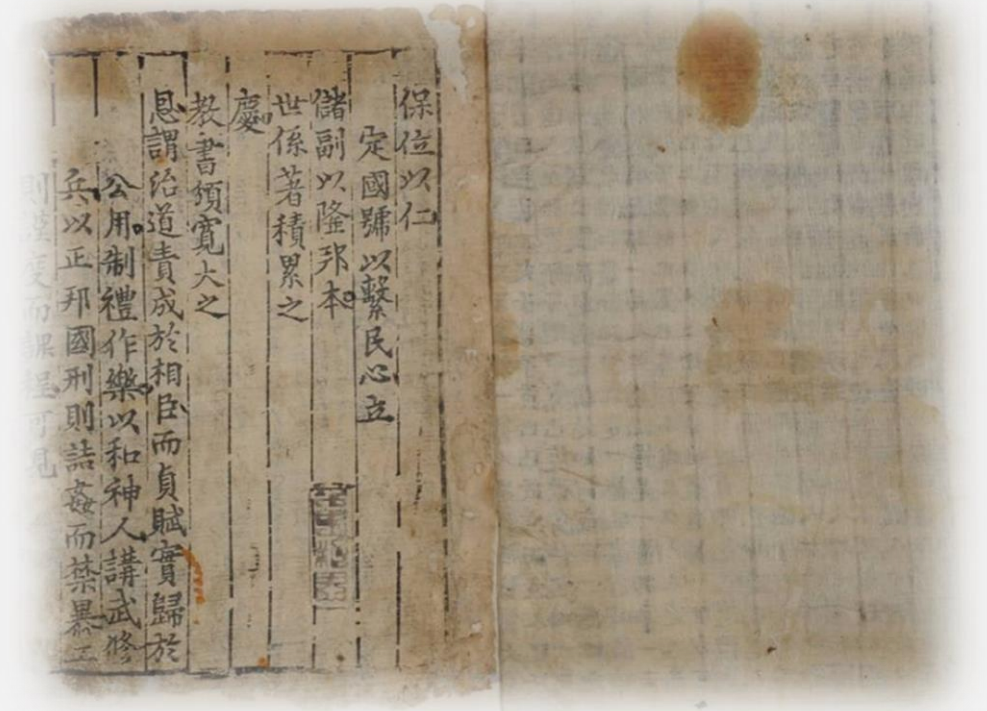 保位以仁
定國號以繫民心立
儲副以隆邦本
世係著積累之
慶
教書頒寬大之
恩謂治道責成於相臣而貢賦實歸於
公用制禮作樂以和神人講武修
兵以正邦國刑則詰姦而禁暴工
則謹度而課程可見